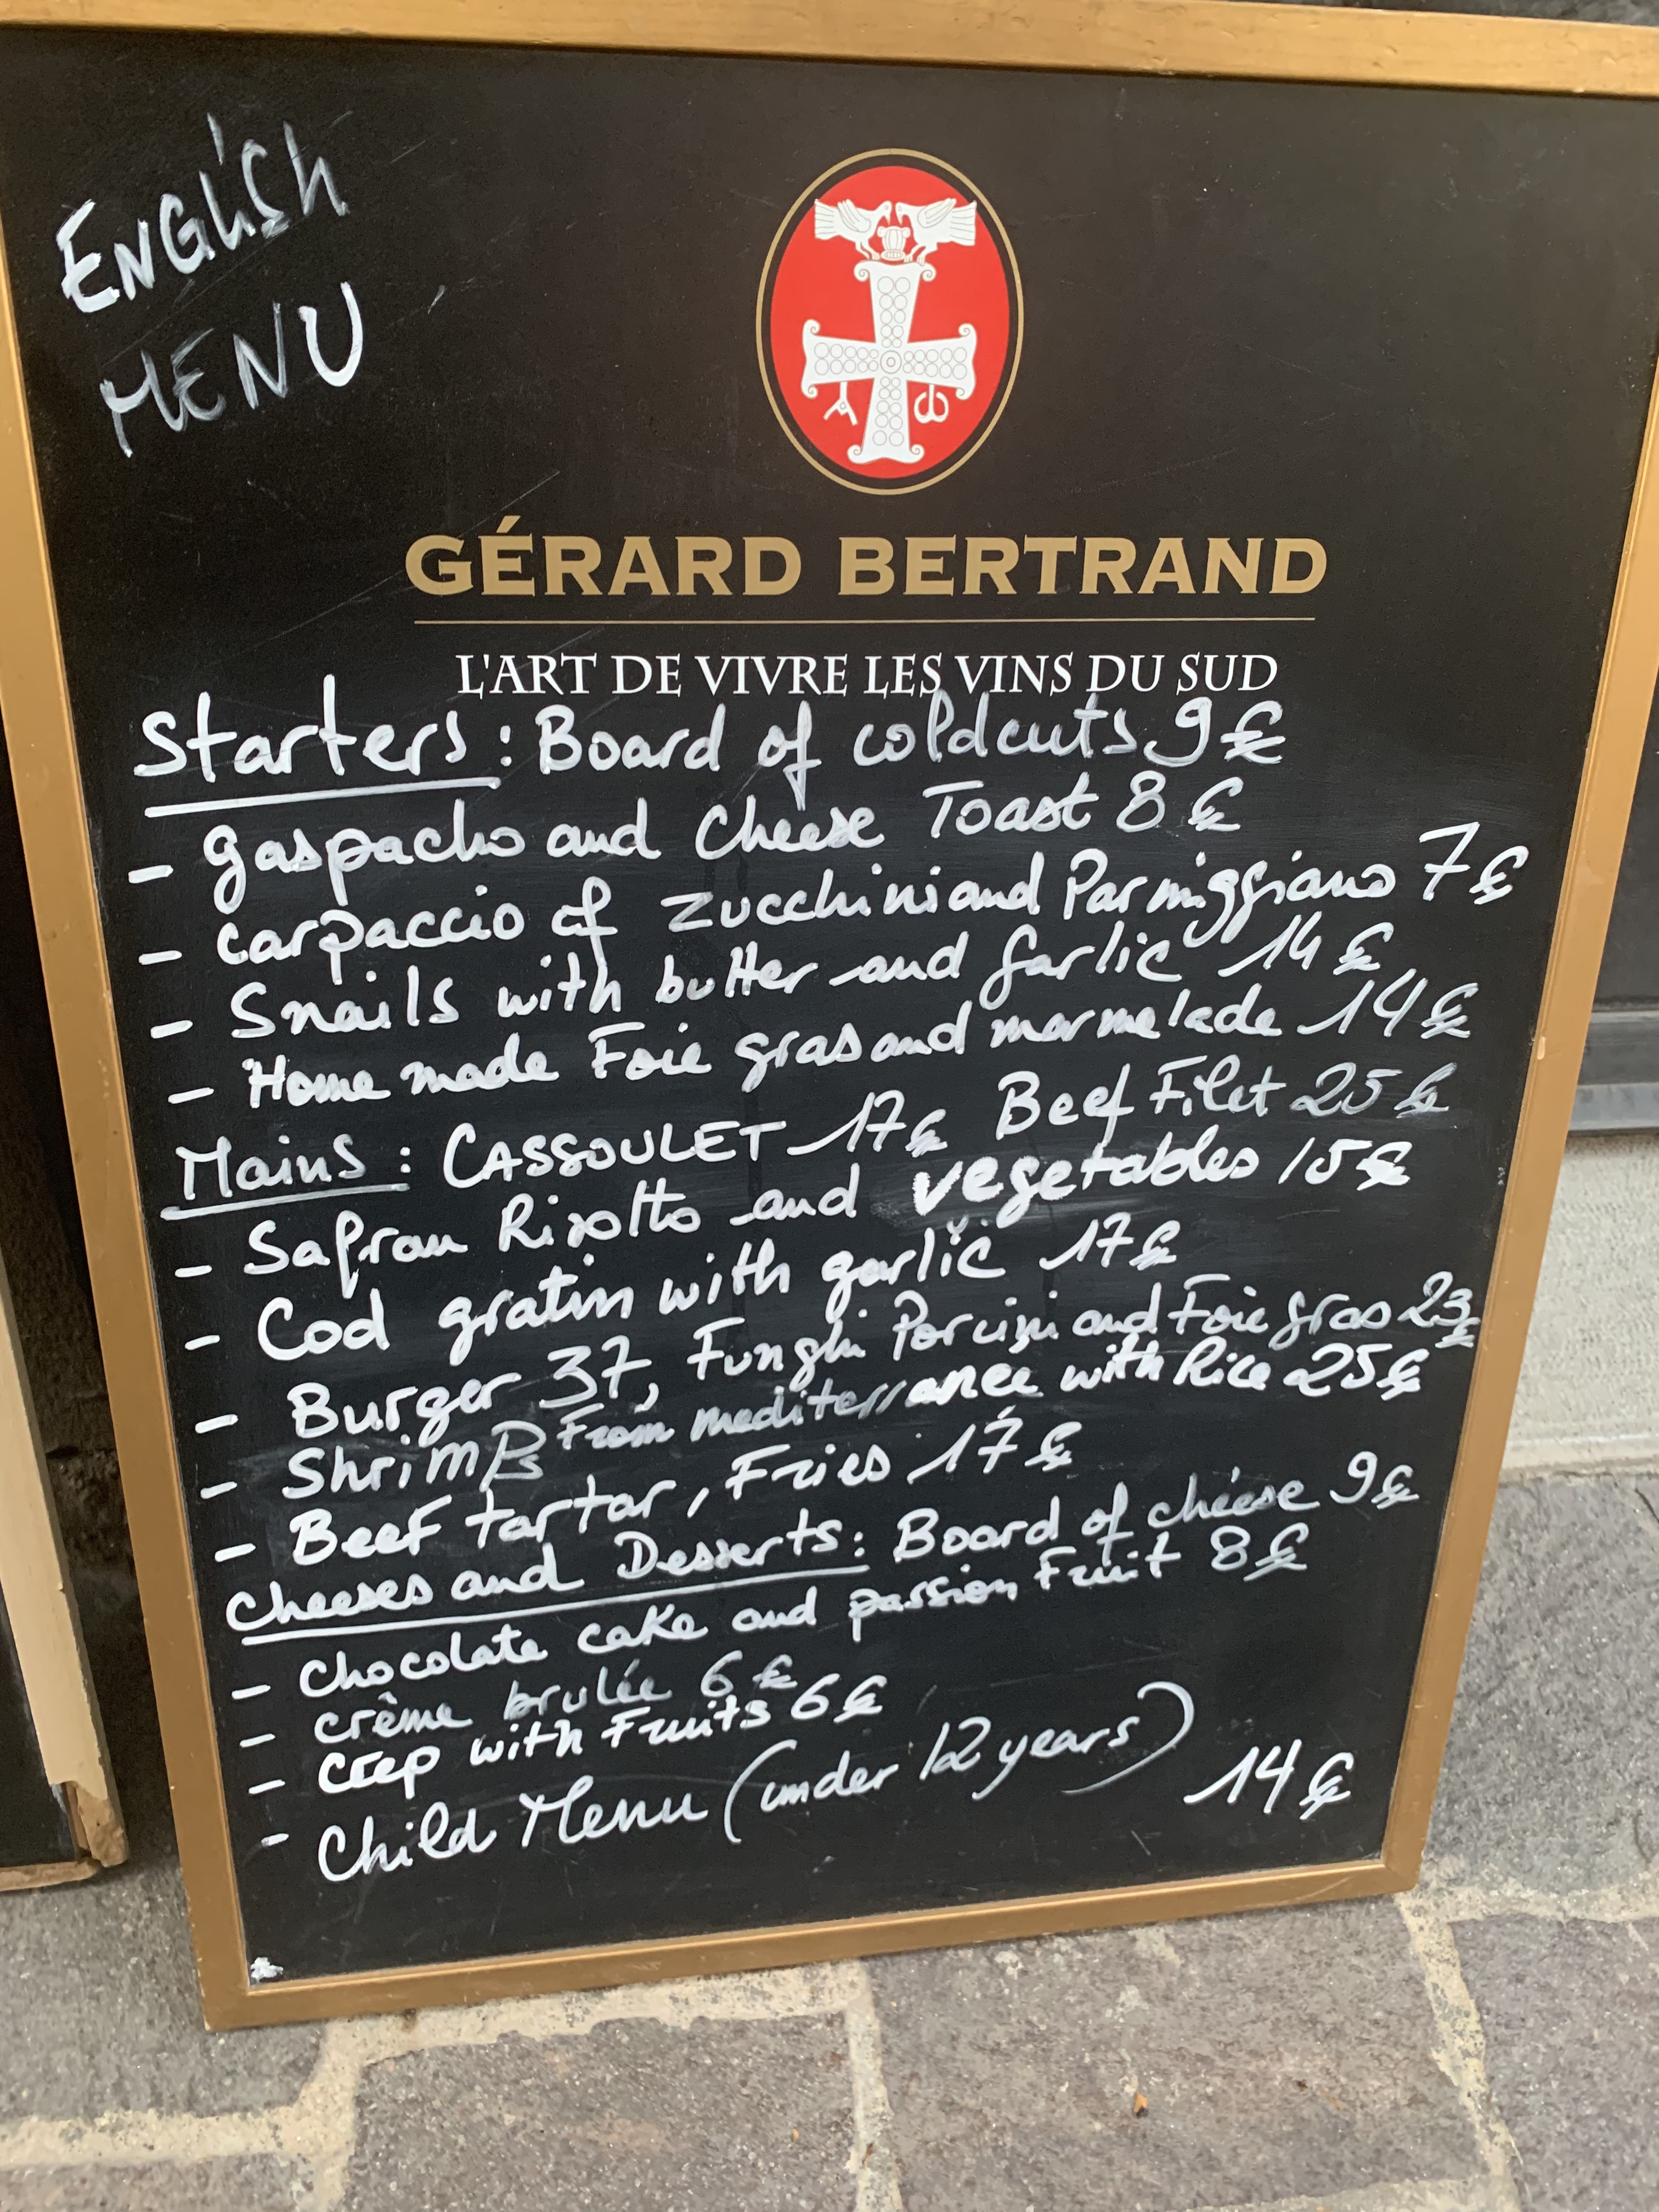 ENGLISH
MENU
GÉRARD BERTRAND
L'ART DE VIVRE LES VINS DU SUD
Starters : Board of coldcuts 9€
- gaspacho and cheese Toast 8€
- carpaccio of zucchini and Parmiggiano 7€
- Snails with butter and garlic 14€
- Home made Foie gras and marmelade 14€
Mains : CASSOULET 17€ Beef Filet 25€
- Safran Rizotto and vegetables 15€
- Cod gratin with garlic 17€
- Burger 37, Funghi Porcini and Foie gras 23€
- Shrimps From mediterranee with Rice 25€
- Beef tartar, Fries 17€
Cheeses and Desserts : Board of cheese 9€
- chocolate cake and passion Fruit 8€
- crème brulée 6€
- crep with Fruits 6€
- Child Menu (under 12 years) 14€